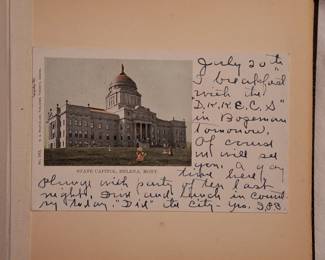 July 20th
I breakfast
with the
"D.K.K.E.C.S"
in Bozeman
tomorrow.
Of course
we will see
you. A gay
time here,
Plunge with party of ten last
night, Dine and lunch in count
ry today. "Did" the city - yrs.
STATE CAPITOL, HELENA, MONT.